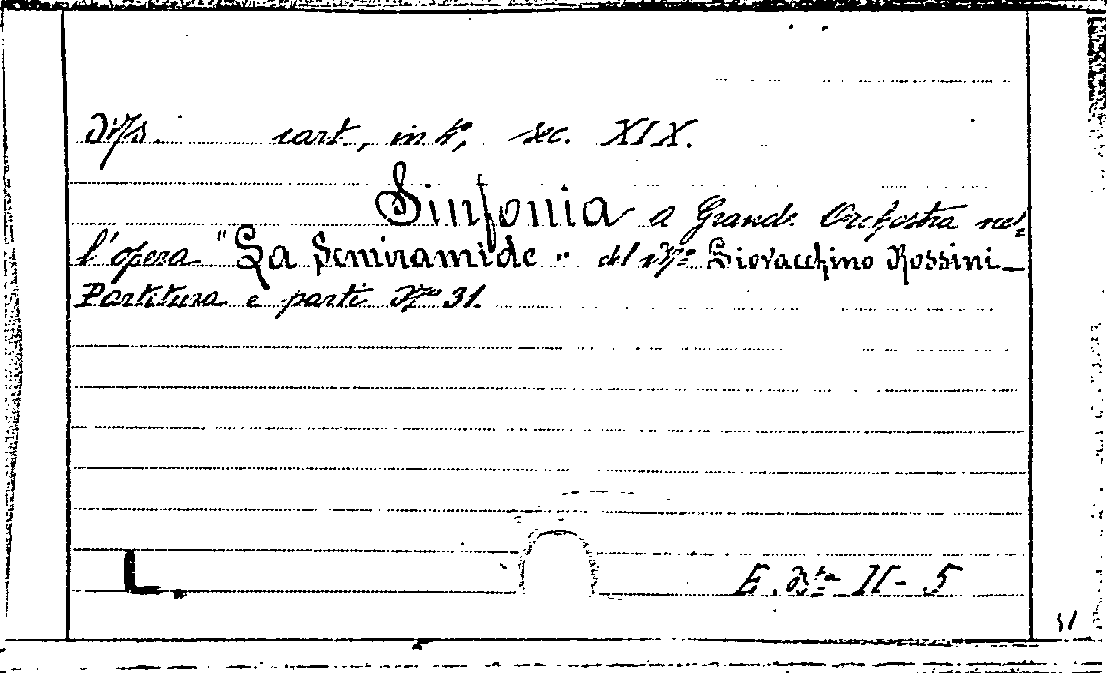 Ms. cart., in 4º, sec. XIX.
Sinfonia a Grande Orchestra nel-
l'opera "La Semiramide" del Mº Giovacchino Rossini_
Partitura e parti Nº 31.
L.
E. Bta II-5